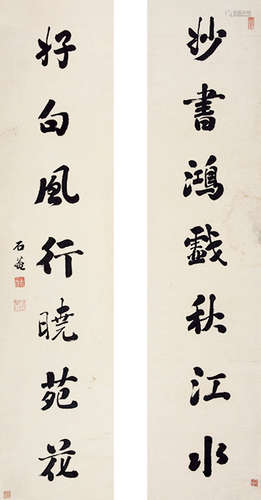 妙書鴻戲秋江水
好句風行曉苑花
石菴